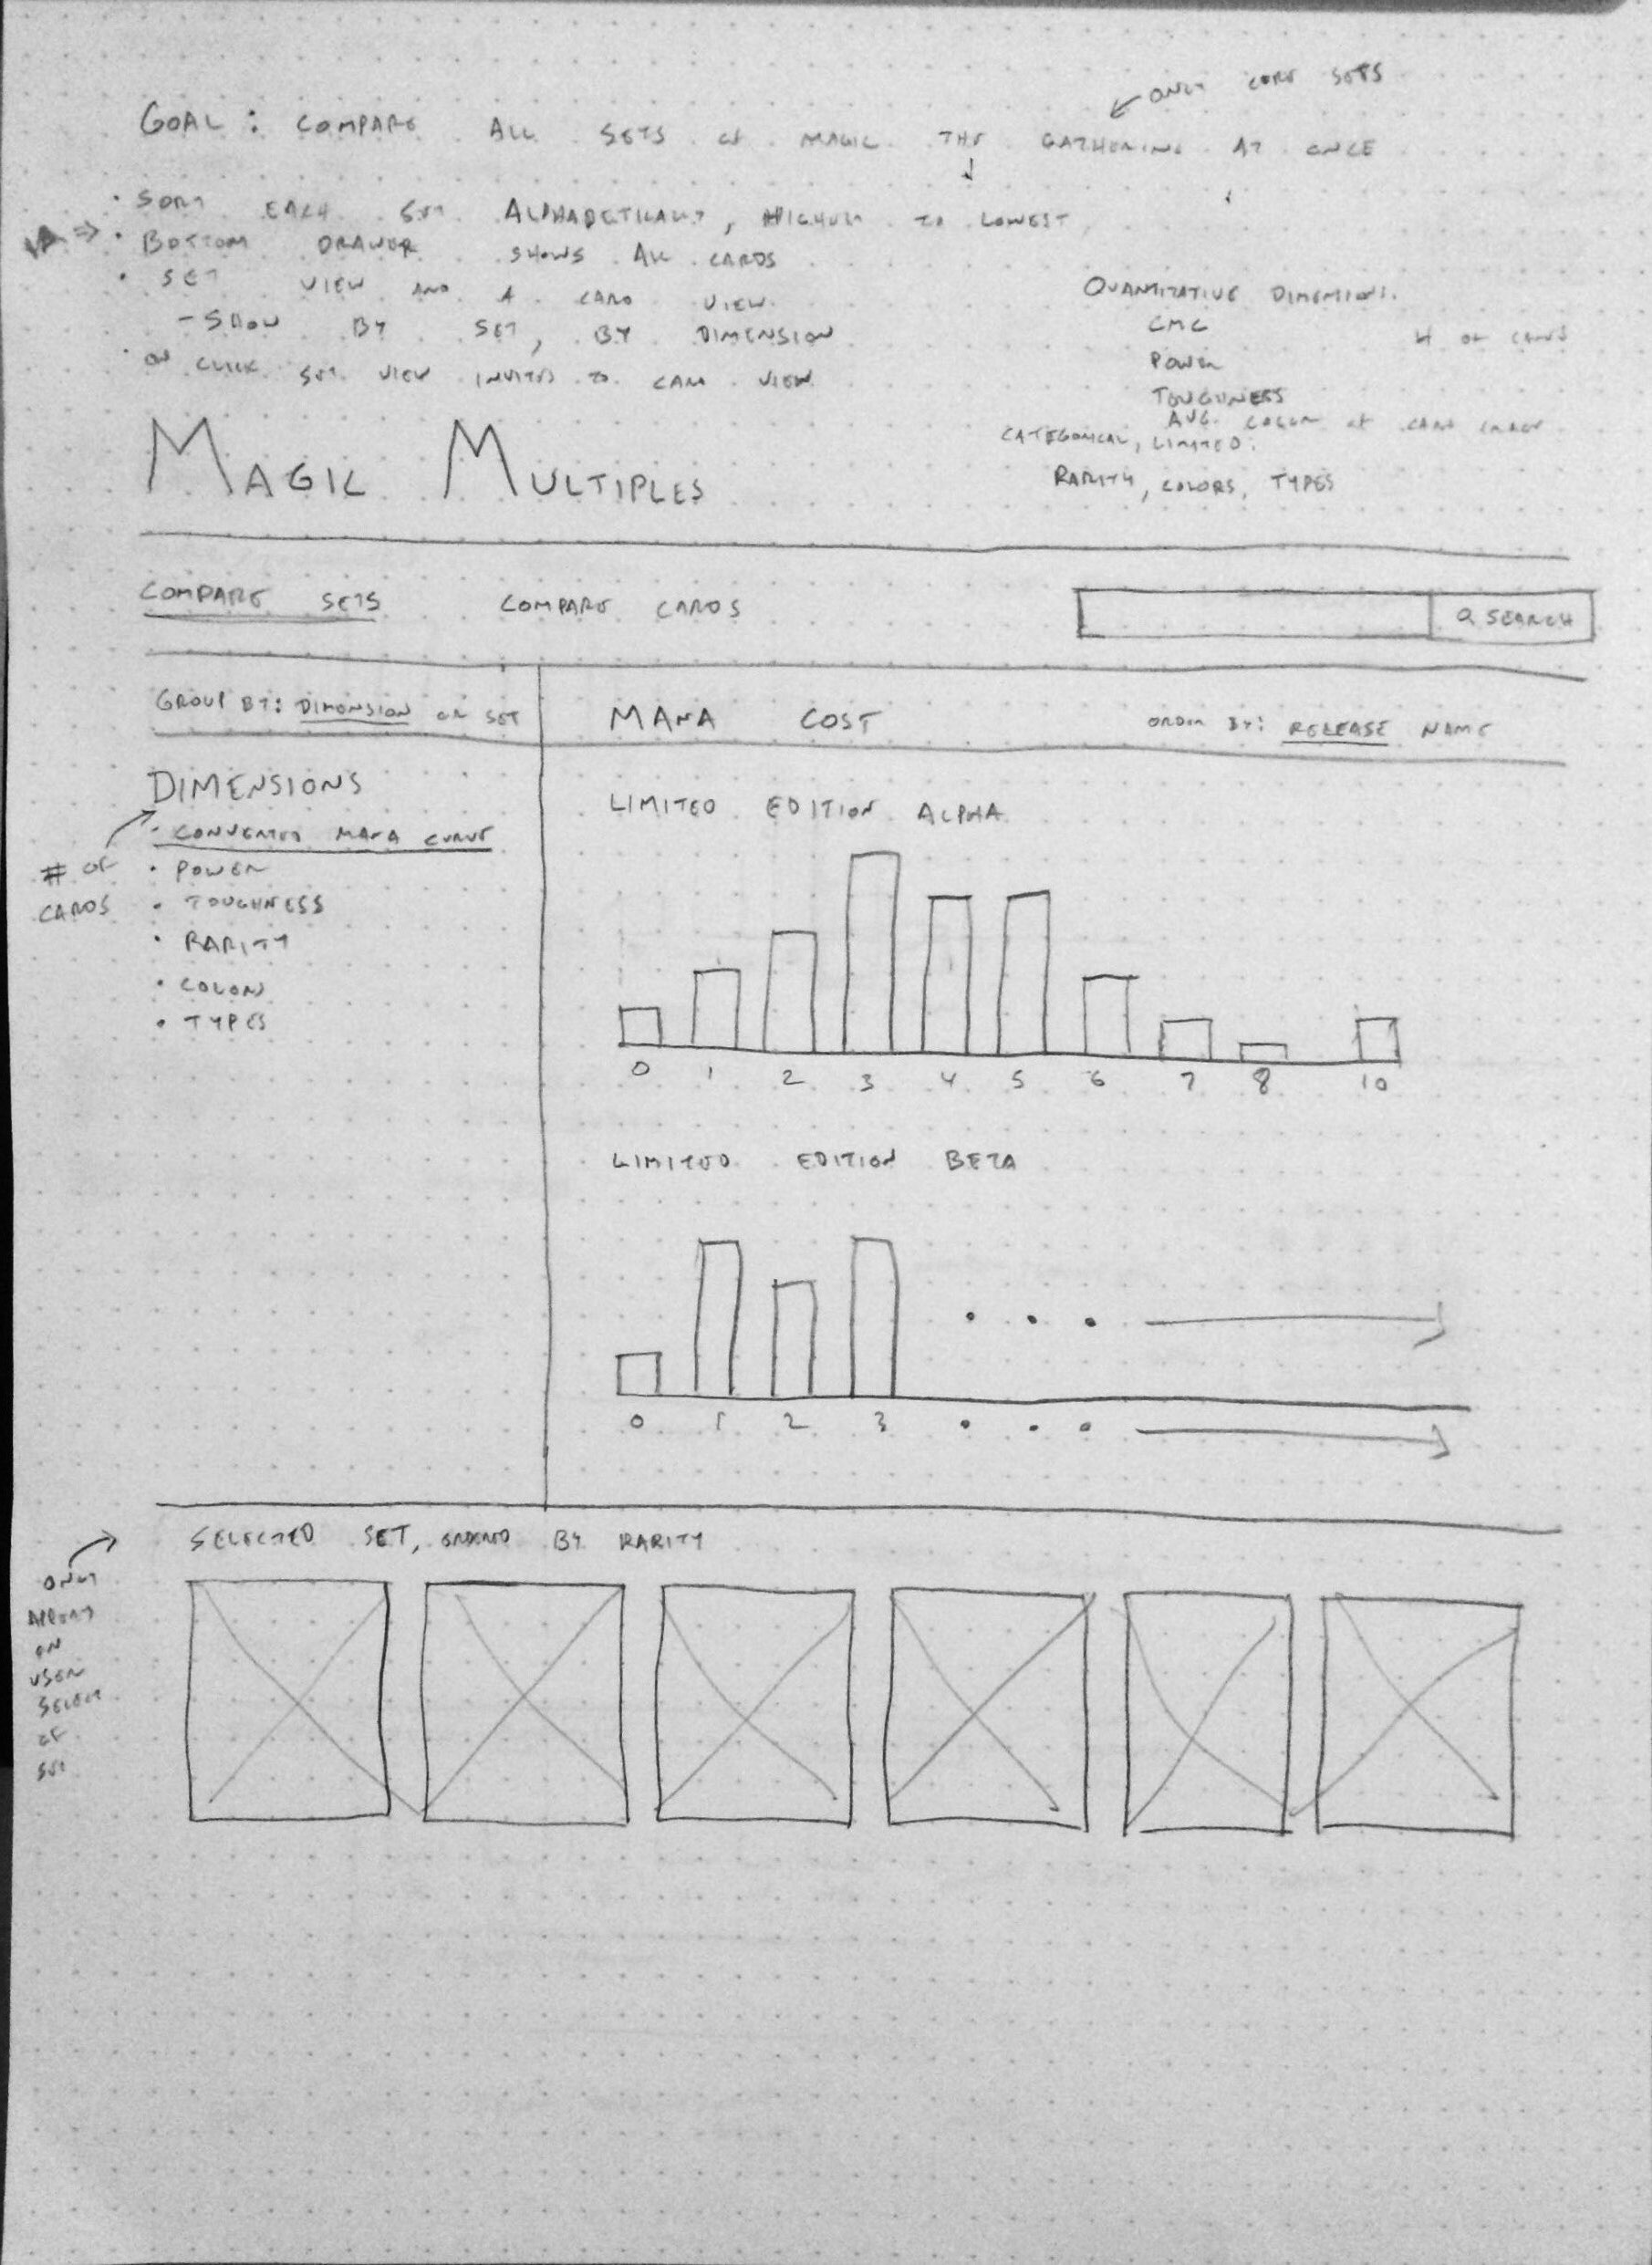 ONLY CORE SETS
GOAL: COMPARE ALL SETS OF MAGIC THE GATHERING AT ONCE
• SORT EACH SET ALPHABETICALLY, HIGHEST TO LOWEST
• BOTTOM DRAWER SHOWS ALL CARDS
• SET VIEW AND A CARD VIEW
- SHOW BY SET, BY DIMENSION
• ON CLICK SET VIEW INVITES TO CARD VIEW
QUANTITATIVE DIMENSIONS.
CMC
# OF CARDS
POWER
TOUGHNESS
AVG. COLOR OF CARD IMAGE
CATEGORICAL, LIMITED:
RARITY, COLORS, TYPES
MAGIC MULTIPLES
COMPARE SETS COMPARE CARDS
SEARCH
GROUP BY: DIMENSION OR SET
MANA COST
ORDER BY: RELEASE NAME
DIMENSIONS
• CONVERTED MANA CURVE
• POWER
• TOUGHNESS
• RARITY
• COLORS
• TYPES
# OF
CARDS
LIMITED EDITION ALPHA
0 1 2 3 4 5 6 7 8 10
LIMITED EDITION BETA
0 1 2 3 . . .
SELECTED SET, ORDERED BY RARITY
ONLY
APPEARS
ON
USER
SELECT
OF
SET